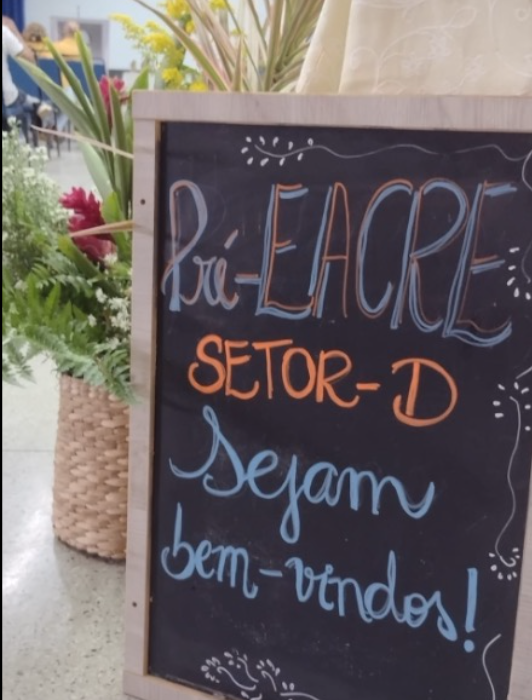 Pré-EACRE
SETOR-D
Sejam
bem-vindos!